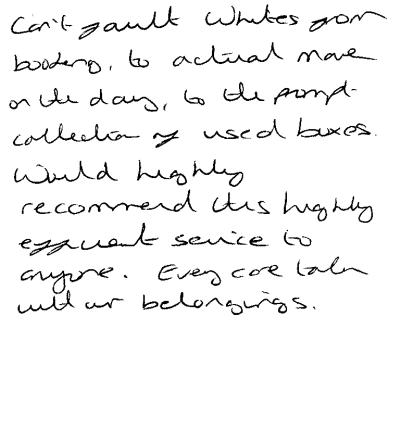 Can't fault Whites from
booking, to actual move
on the day, to the prompt
collection of used boxes.
Would highly
recommend this highly
efficient service to
anyone. Every care taken
with our belongings.